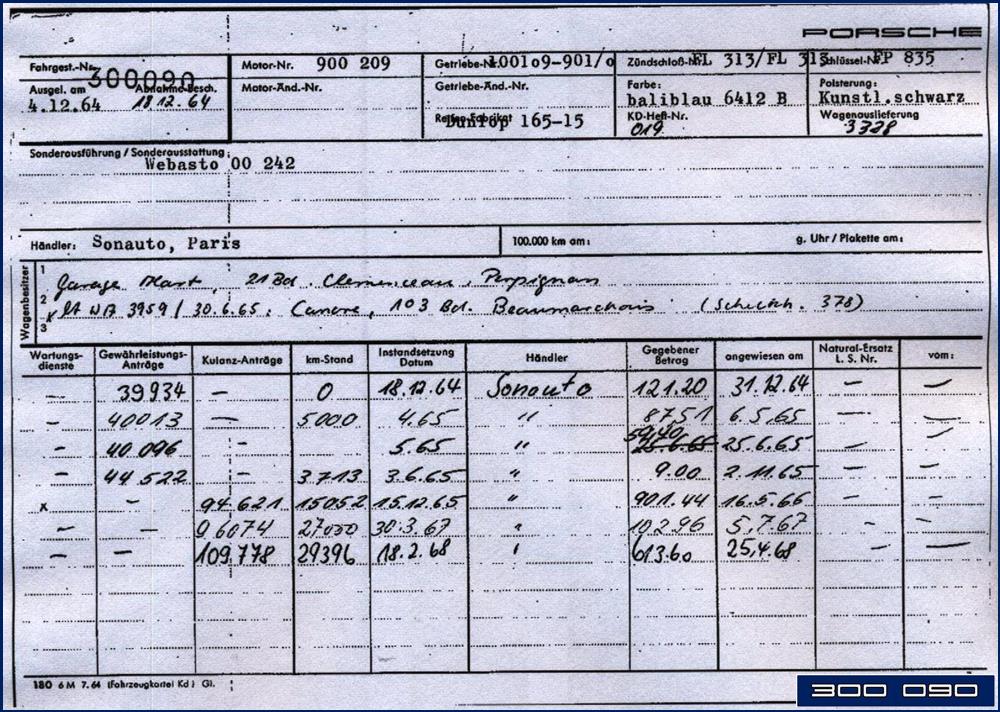 PORSCHE
Fahrgest.-Nr. 300090
Motor-Nr. 900 209
Getriebe-Nr. 100109-901/0
Zündschloß-Nr. FL 313/FL 313
Schlüssel-Nr. FP 835
Ausgel. am 4.12.64
Abnahme-Besch. 18 12. 64
Motor-Änd.-Nr.
Getriebe-Änd.-Nr.
Farbe: baliblau 6412 B
Polsterung: Kunstl.schwarz
Reifen-Fabrikat Dunlop 165-15
KD-Heft-Nr. 019
Wagenauslieferung 3328
Sonderausführung / Sonderausstattung:
Webasto 00 242
Händler: Sonauto, Paris
100.000 km am:
g. Uhr / Plakette am:
Wagenbesitzer
1 Garage 21 Bd. Clemenceau. Perpignan
2 lt WA 3959 / 30.6.65: 103 Bd. Beaumarchais ( 378)
3
Wartungsdienste Gewährleistungs-Anträge Kulanz-Anträge km-Stand Instandsetzung Datum Händler Gegebener Betrag angewiesen am Natural-Ersatz L. S. Nr. vom:
– 39934 – 0 18.12.64 Sonauto 121.20 31.12.64 – –
– 40013 – 5000 4.65 " 87.51 6.5.65 – –
– 40096 – 5.65 " 25.6.65 – –
– 44522 – 3713 3.6.65 " 9.00 2.11.65 – –
x – 94621 15052 15.12.65 " 901.44 16.5.66 – –
– – 96074 27000 30.3.67 " 102.96 5.7.67 – –
– – 109.778 29396 18.2.68 " 613.60 25.4.68 – –
180 6 M 7. 64 (Fahrzeugkartei Kd) Gl.
300 090